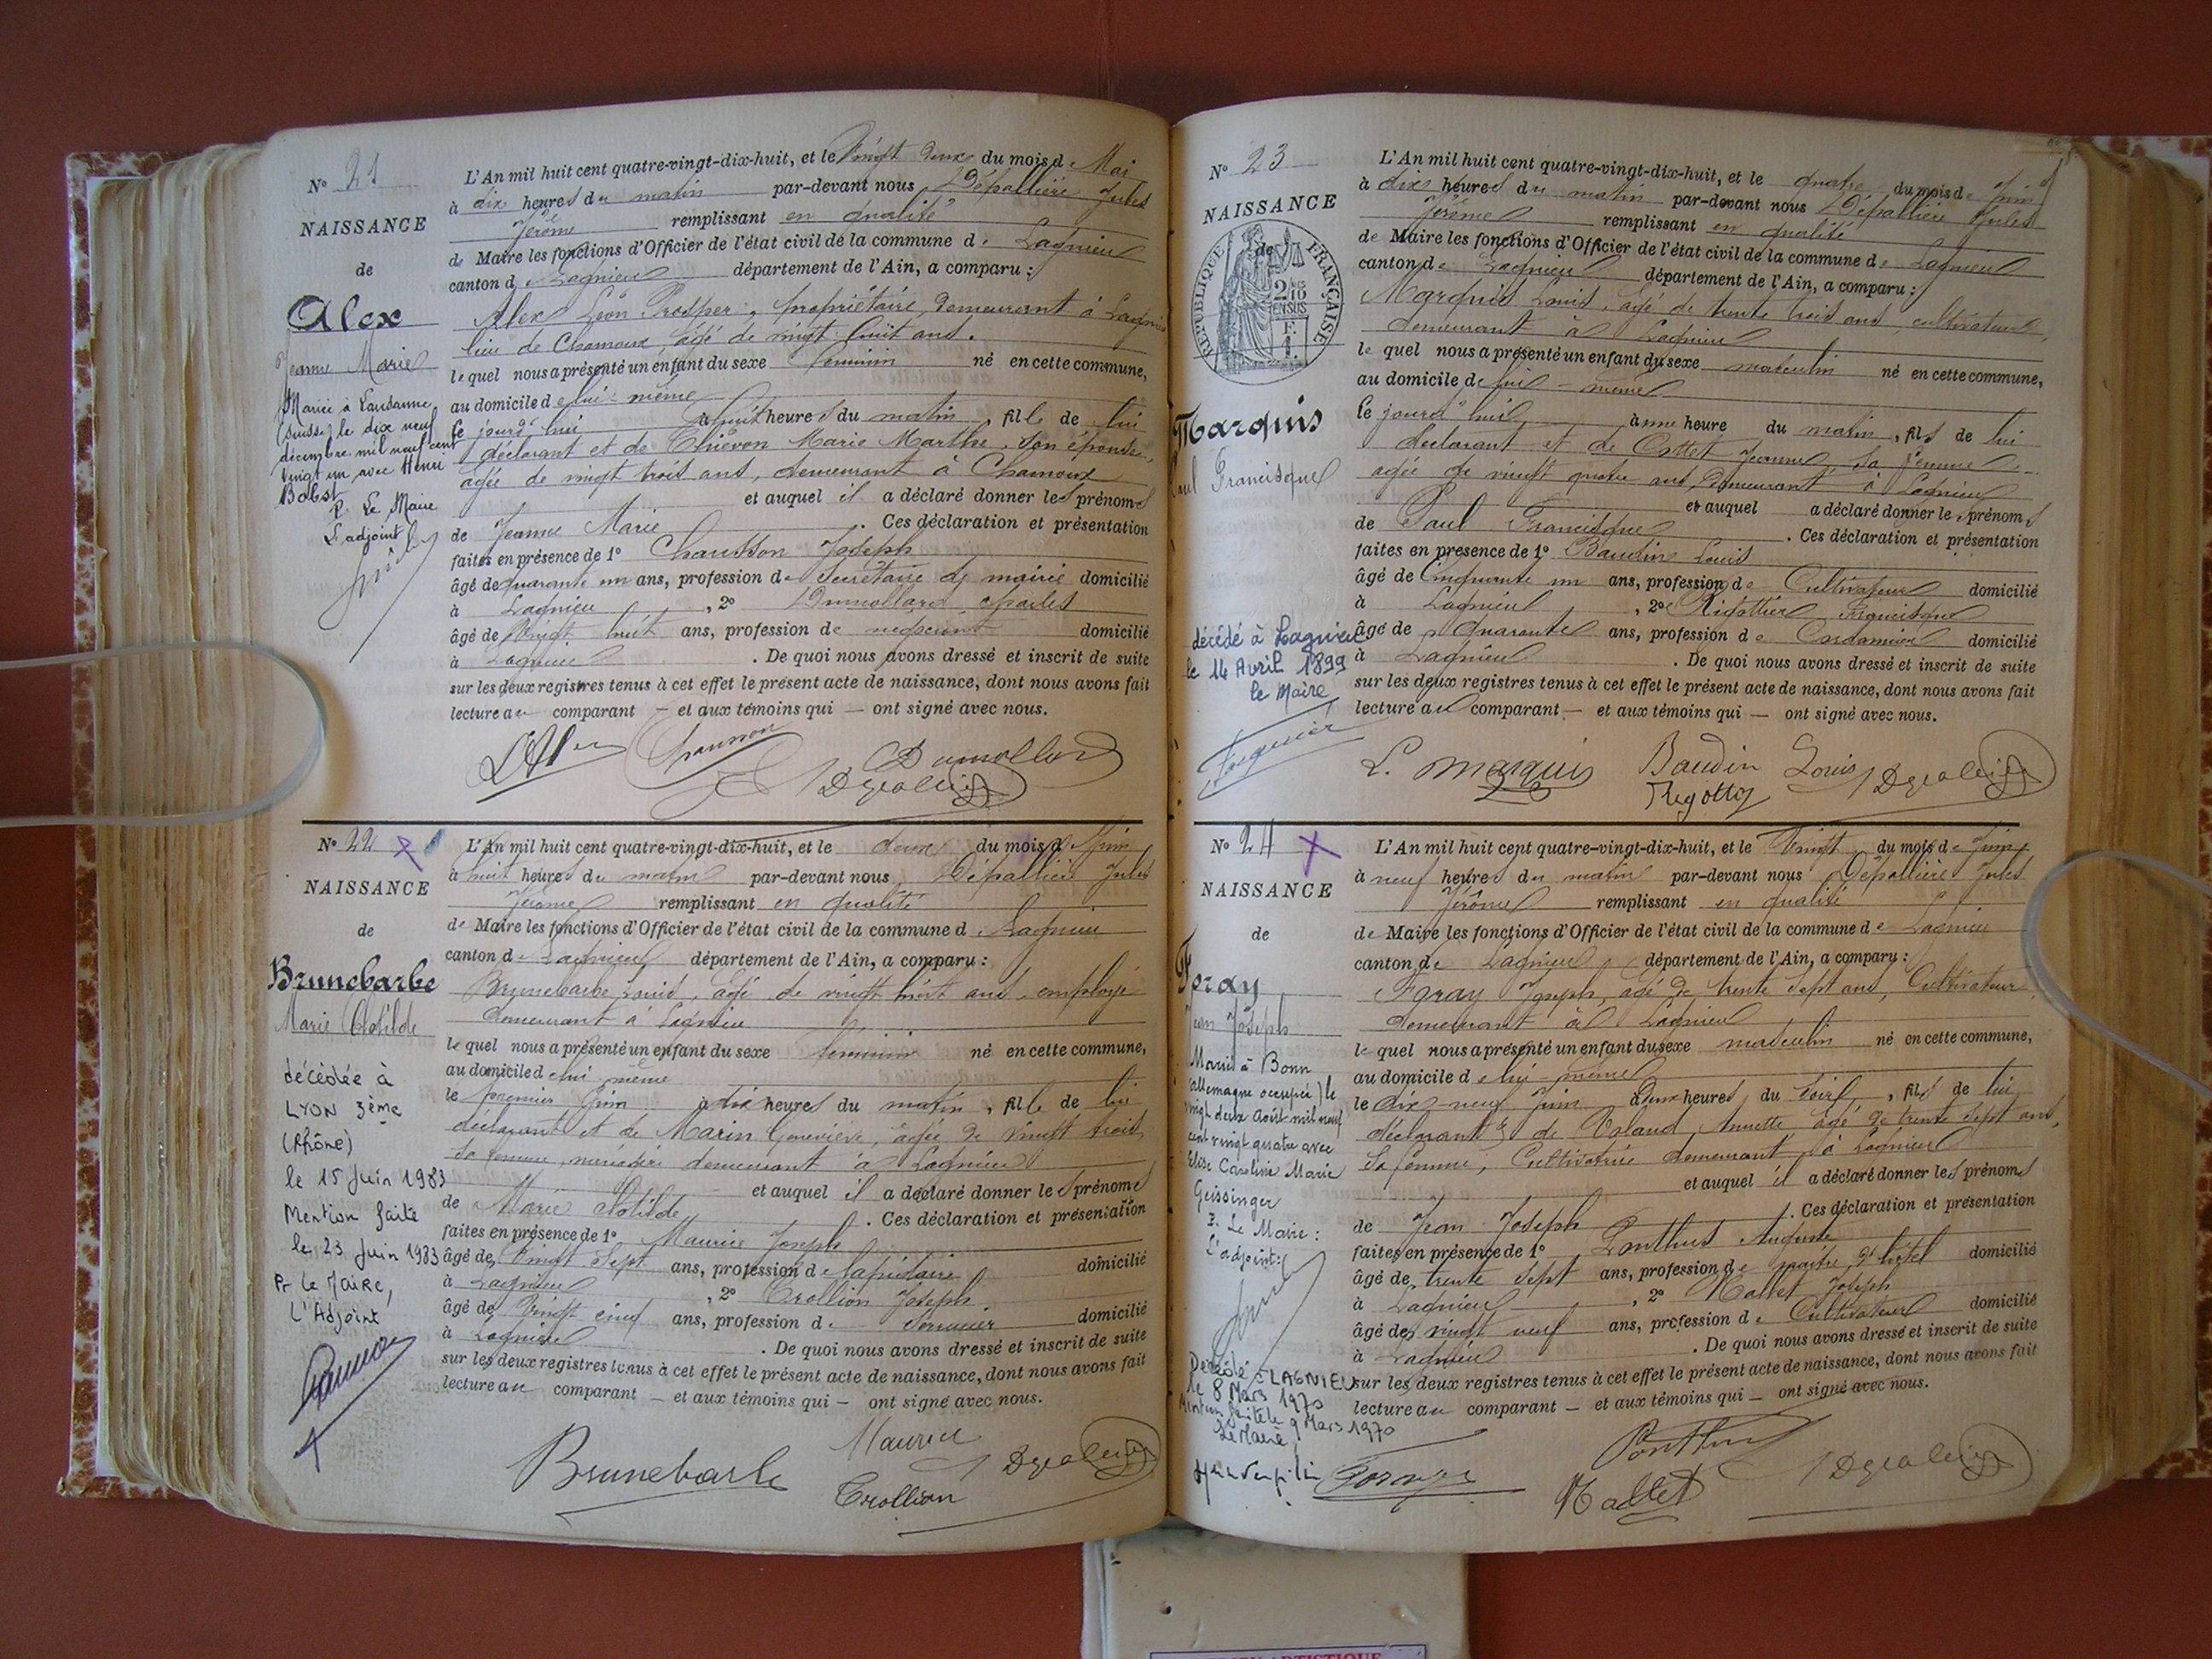 N° 21
NAISSANCE
de
Alex
Jeanne Marie
Mariée à Lausanne
(Suisse) le dix neuf
décembre mil neuf cent
vingt un avec Henri
Bobst
P. Le Maire
L'adjoint
L'An mil huit cent quatre-vingt-dix-huit, et le Vingt deux du mois d Mai
à dix heures du matin par-devant nous Dépallière Jules
Jérôme remplissant en qualité
de Maire les fonctions d'Officier de l'état civil de la commune de Lagnieu
canton de Lagnieu département de l'Ain, a comparu :
Alex Léon Prosper, propriétaire, demeurant à Lagnieu
lieu de Chamoux, âgé de vingt huit ans.
lequel nous a présenté un enfant du sexe féminin né en cette commune,
au domicile de lui-même
le jourd'hui à huit heures du matin, fille de lui
déclarant et de Thiévon Marie Marthe, son épouse,
âgée de vingt trois ans, demeurant à Chamoux
et auquel il a déclaré donner les prénoms
de Jeanne Marie . Ces déclaration et présentation
faites en présence de 1° Chausson Joseph
âgé de quarante un ans, profession de Secrétaire de mairie domicilié
à Lagnieu , 2° Dumollard Charles
âgé de Vingt huit ans, profession de négociant domicilié
à Lagnieu . De quoi nous avons dressé et inscrit de suite
sur les deux registres tenus à cet effet le présent acte de naissance, dont nous avons fait
lecture au comparant – et aux témoins qui – ont signé avec nous.
Chausson Dumollard
N° 22
NAISSANCE
de
Brunebarbe
Marie Clotilde
décédée à
LYON 3ème
(Rhône)
le 15 Juin 1983
Mention faite
le 23 Juin 1983
Pr Le Maire,
L'Adjoint
L'An mil huit cent quatre-vingt-dix-huit, et le deux du mois d Juin
à huit heures du matin par-devant nous Dépallière Jules
Jérôme remplissant en qualité
de Maire les fonctions d'Officier de l'état civil de la commune d Lagnieu
canton de Lagnieu département de l'Ain, a comparu :
Brunebarbe Louis, âgé de vingt huit ans, employé
demeurant à Lagnieu
lequel nous a présenté un enfant du sexe féminin né en cette commune,
au domicile de lui même
le premier Juin à dix heures du matin, fille de lui
déclarant et de Marin Geneviève, âgée de vingt trois
sa femme, ménagère demeurant à Lagnieu
et auquel il a déclaré donner les prénoms
de Marie Clotilde . Ces déclaration et présentation
faites en présence de 1° Maurice Joseph
âgé de Vingt Sept ans, profession de lapidaire domicilié
à Lagnieu , 2° Crollion Joseph
âgé de Vingt cinq ans, profession de Serrurier domicilié
à Lagnieu . De quoi nous avons dressé et inscrit de suite
sur les deux registres tenus à cet effet le présent acte de naissance, dont nous avons fait
lecture au comparant – et aux témoins qui – ont signé avec nous.
Brunebarbe Maurice
Crollion
N° 23
NAISSANCE
de
RÉPUBLIQUE FRANÇAISE
2/10 EN SUS
F.
1.
Marquis
Paul Francisque
décédé à Lagnieu
le 14 Avril 1899
le Maire
L'An mil huit cent quatre-vingt-dix-huit, et le quatre du mois de Juin
à dix heures du matin par-devant nous Dépallière Jules
Jérôme remplissant en qualité
de Maire les fonctions d'Officier de l'état civil de la commune de Lagnieu
canton de Lagnieu département de l'Ain, a comparu :
Marquis Louis, âgé de trente trois ans, cultivateur,
demeurant à Lagnieu
lequel nous a présenté un enfant du sexe masculin né en cette commune,
au domicile de lui-même
le jourd'hui à une heure du matin, fils de lui
déclarant et de Cottet Jeanne, sa femme
âgée de vingt quatre ans, demeurant à Lagnieu
et auquel a déclaré donner les prénoms
de Paul Francisque . Ces déclaration et présentation
faites en présence de 1° Baudin Louis
âgé de Cinquante un ans, profession de Cultivateur domicilié
à Lagnieu , 2° Rigottier Francisque
âgé de quarante ans, profession de Cordonnier domicilié
à Lagnieu . De quoi nous avons dressé et inscrit de suite
sur les deux registres tenus à cet effet le présent acte de naissance, dont nous avons fait
lecture au comparant – et aux témoins qui – ont signé avec nous.
L. Marquis Baudin Louis
N° 24
NAISSANCE
de
Foray
Jean Joseph
Marié à Bonn
(allemagne occupée) le
vingt deux août mil neuf
cent vingt quatre avec
Elise Caroline Marie
Geissinger
P. Le Maire :
L'adjoint :
Décédé à LAGNIEU
le 8 Mars 1970
Mention faite le 9 Mars 1970
Le Maire,
L'An mil huit cent quatre-vingt-dix-huit, et le Vingt du mois de Juin
à neuf heures du matin par-devant nous Dépallière Jules
Jérôme remplissant en qualité
de Maire les fonctions d'Officier de l'état civil de la commune de Lagnieu
canton de Lagnieu département de l'Ain, a comparu :
Foray Joseph, âgé de trente sept ans, Cultivateur,
demeurant à Lagnieu
lequel nous a présenté un enfant du sexe masculin né en cette commune,
au domicile de lui-même
le dix-neuf Juin à deux heures du soir, fils de lui
déclarant & de Valand Annette âgé de trente sept ans,
sa femme, Cultivatrice demeurant à Lagnieu
et auquel il a déclaré donner les prénoms
de Jean Joseph . Ces déclaration et présentation
faites en présence de 1° Ponthus Auguste
âgé de trente sept ans, profession de maître d'hôtel domicilié
à Lagnieu , 2° Mallet Joseph
âgé de vingt neuf ans, profession de Cultivateur domicilié
à Lagnieu . De quoi nous avons dressé et inscrit de suite
sur les deux registres tenus à cet effet le présent acte de naissance, dont nous avons fait
lecture au comparant – et aux témoins qui – ont signé avec nous.
Foray Ponthus
Mallet